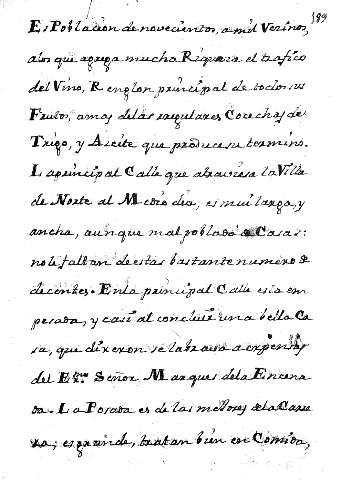 189
Es Poblacion de novecientos, a mil Vecinos,
alos que agrega mucha Riqueza el trafico
del Vino, Renglon principal de todos sus
Frutos, amas delas regulares Cosechas de
Trigo, y Aceite que produce su termino.
La principal Calle que atraviesa la Villa
de Norte al Medio dia, es mui larga, y
ancha, aunque mal poblada de Casas:
no le faltan de estas bastante numero de
decentes. En la principal Calle esta em
pesada, y casi al concluir una bella Ca
sa, que dixeron se labraba a expensas
del Exmo. Señor Marques dela Encena
da. La Posada es de las mejores de la Carre
ra; es grande, tratan bien en Comida,